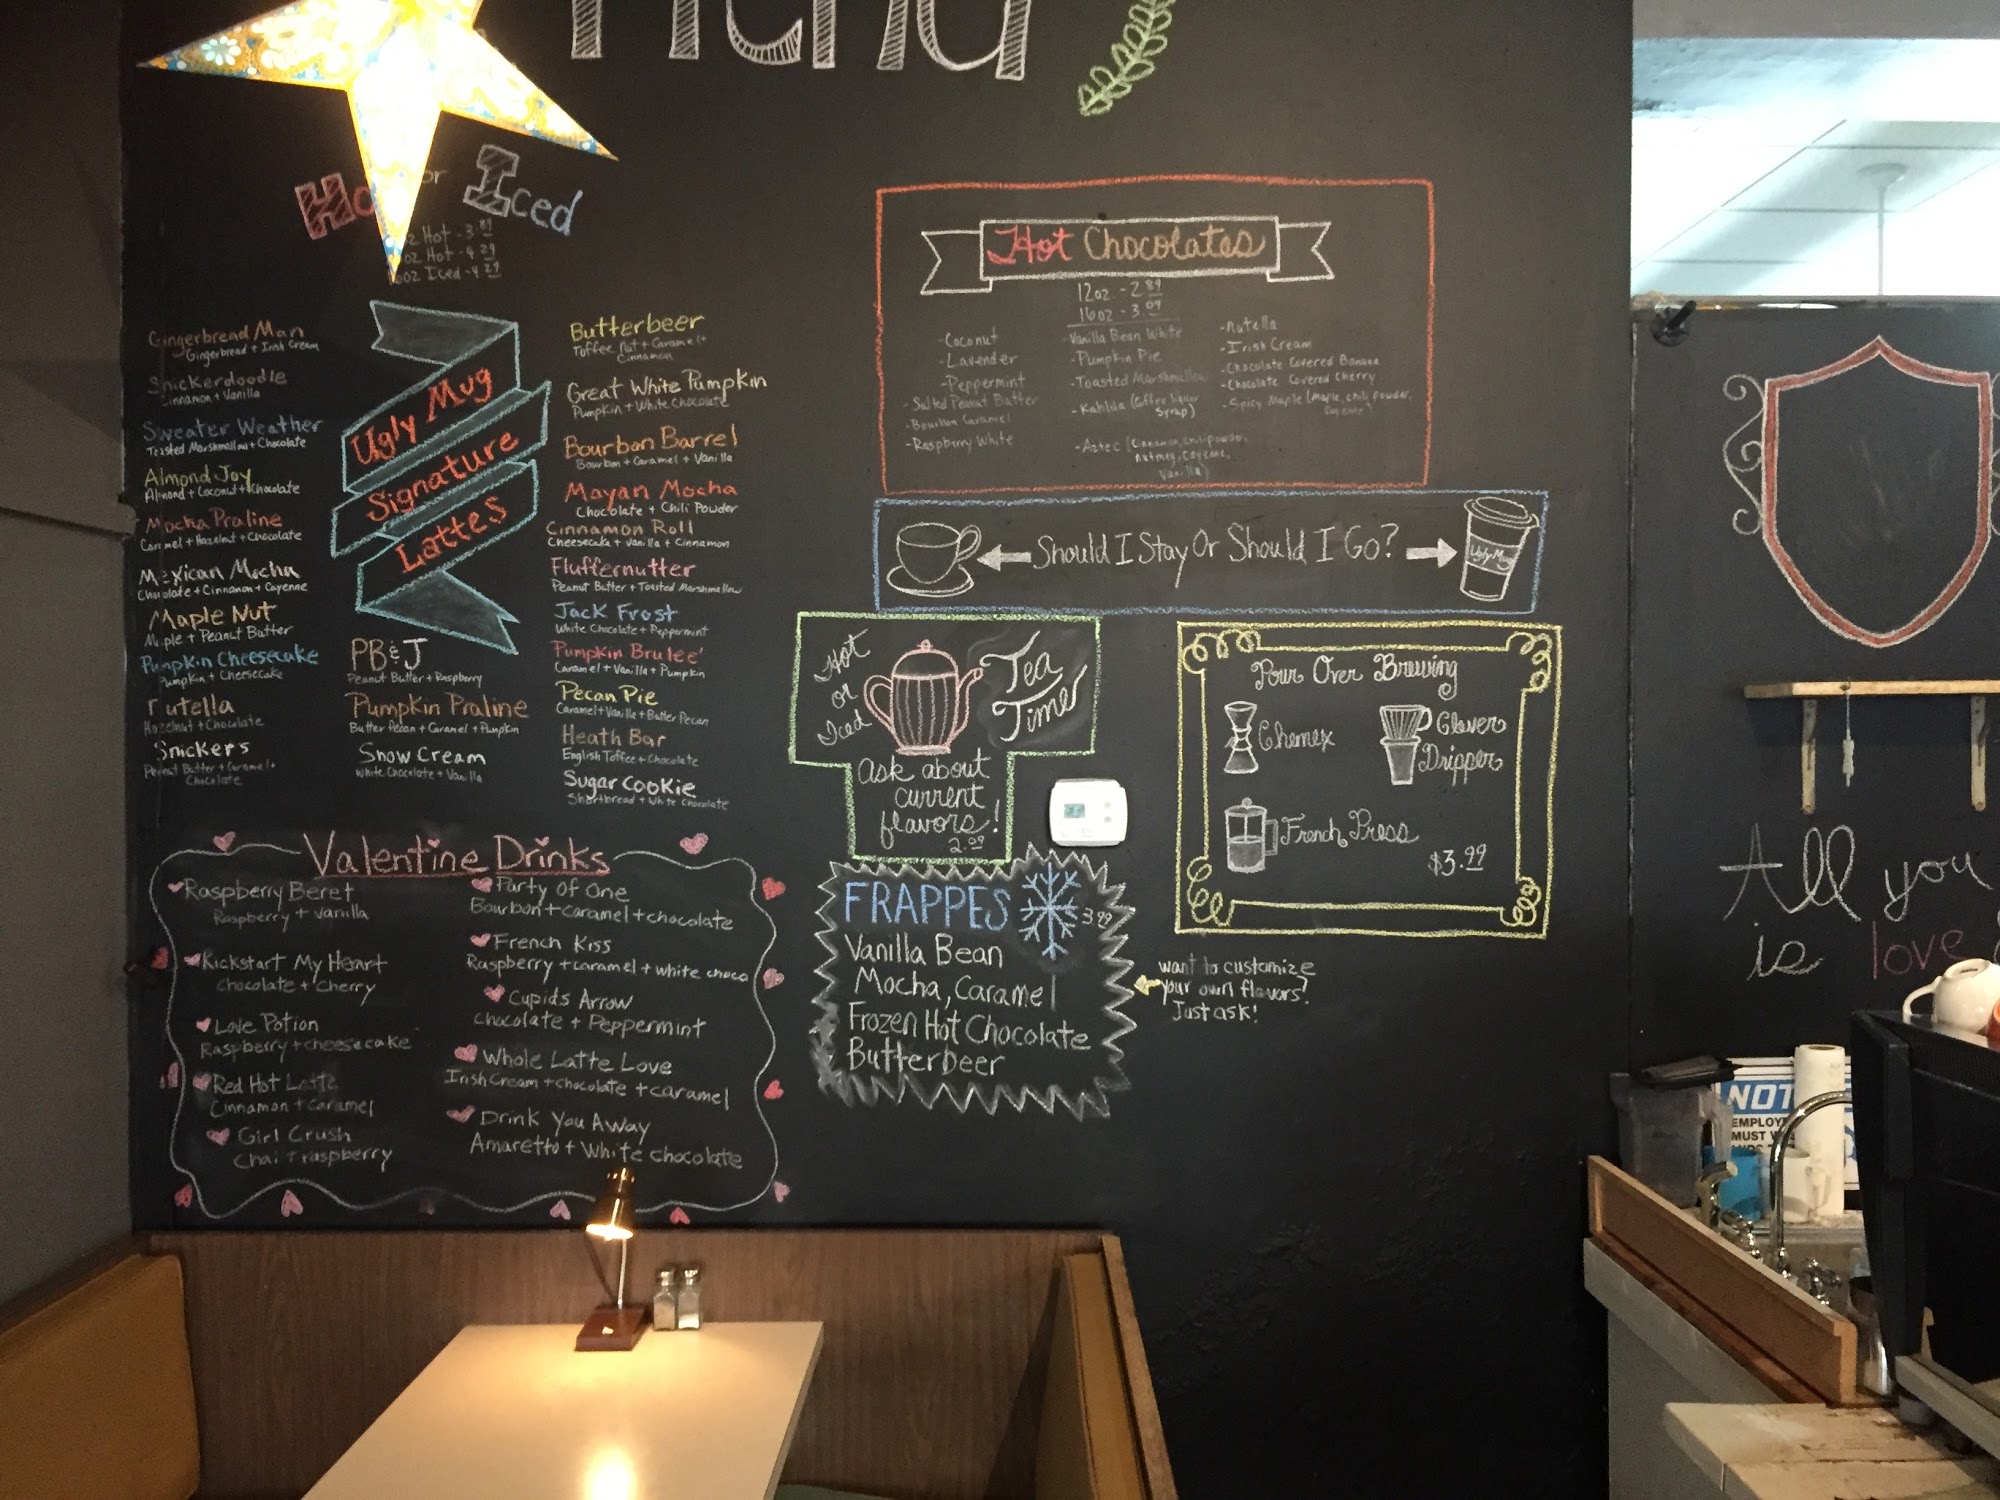 Menu
or Iced
Hot - 3.89
oz Hot - 4.29
16oz Iced - 4.29
Gingerbread Man
Gingerbread + Irish Cream
Snickerdoodle
Cinnamon + Vanilla
Sweater Weather
Toasted Marshmallow + Chocolate
Almond Joy
Almond + Coconut + Chocolate
Mocha Praline
Caramel + Hazelnut + Chocolate
Mexican Mocha
Chocolate + Cinnamon + Cayenne
Maple Nut
Maple + Peanut Butter
Pumpkin Cheesecake
Pumpkin + Cheesecake
Nutella
Hazelnut + Chocolate
Snickers
Peanut Butter + Caramel +
Chocolate
Ugly Mug
Signature
Lattes
PB & J
Peanut Butter + Raspberry
Pumpkin Praline
Butter Pecan + Caramel + Pumpkin
Snow Cream
White Chocolate + Vanilla
Butterbeer
Toffee Nut + Caramel +
Cinnamon
Great White Pumpkin
Pumpkin + White Chocolate
Bourbon Barrel
Bourbon + Caramel + Vanilla
Mayan Mocha
Chocolate + Chili Powder
Cinnamon Roll
Cheesecake + Vanilla + Cinnamon
Fluffernutter
Peanut Butter + Toasted Marshmallow
Jack Frost
White Chocolate + Peppermint
Pumpkin Brulee'
Caramel + Vanilla + Pumpkin
Pecan Pie
Caramel + Vanilla + Butter Pecan
Heath Bar
English Toffee + Chocolate
Sugar Cookie
Shortbread + White Chocolate
Valentine Drinks
Raspberry Beret
Raspberry + Vanilla
Kickstart My Heart
Chocolate + Cherry
Love Potion
Raspberry + cheesecake
Red Hot Latte
Cinnamon + Caramel
Girl Crush
Chai + raspberry
Party of One
Bourbon + caramel + chocolate
French Kiss
Raspberry + caramel + white choco
Cupids Arrow
Chocolate + Peppermint
Whole Latte Love
Irish Cream + chocolate + caramel
Drink You Away
Amaretto + White chocolate
Hot Chocolates
12oz. - 2.89
16oz - 3.09
- Coconut
- Lavender
- Peppermint
- Salted Peanut Butter
- Bourbon Caramel
- Raspberry White
- Vanilla Bean White
- Pumpkin Pie
- Toasted Marshmallow
- Kahlua (coffee liquor
syrup)
- Aztec (Cinnamon, chili powder,
nutmeg, Cayenne,
Vanilla)
- Nutella
- Irish Cream
- Chocolate Covered Banana
- Chocolate Covered Cherry
- Spicy Maple (Maple, chili powder,
Cayenne)
Should I Stay Or Should I Go?
Ugly Mug
Hot
or
Iced
Tea
Time
Ask about
current
flavors!
2.09
FRAPPES
3.89
Vanilla Bean
Mocha, Caramel
Frozen Hot Chocolate
Butterbeer
Pour Over Brewing
Chemex
Clever
Dripper
French Press
$3.99
want to customize
your own flavors?
Just ask!
All you
is love
EMPLOY
MUST W